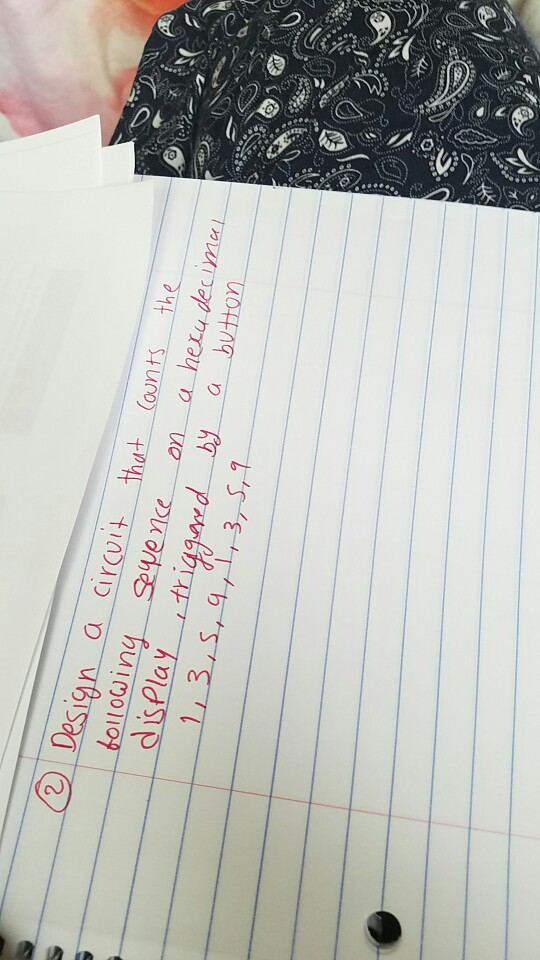 ② Design a circuit that counts the
following sequence on a hexadecimal
display, triggered by a button
1, 3, 5, 9, 1, 3, 5, 9